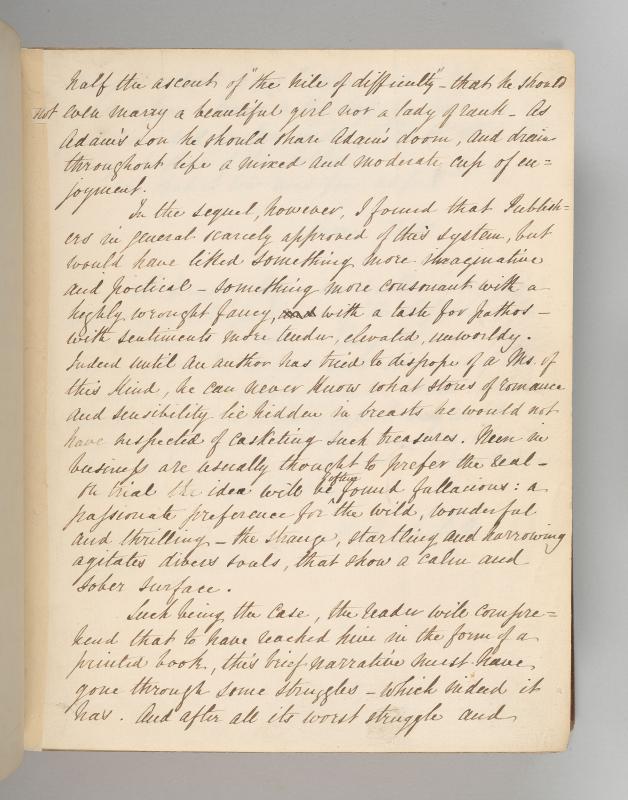 half the ascent of "the Hill of difficulty" – that he should
not even marry a beautiful girl nor a lady of rank – As
Adam's son he should share Adam's doom, and drain
throughout life a mixed and moderate cup of en=
joyment.
In the sequel, however, I found that Publish=
ers in general scarcely approved of this system, but
would have liked something more imaginative
and poetical – something more consonant with a
highly wrought fancy, with a taste for pathos –
with sentiments more tender, elevated, unworldly.
Indeed until an author has tried to dispose of a Ms. of
this kind, he can never know what stores of romance
and sensibility lie hidden in breasts he would not
have suspected of casketing such treasures. Men in
business are usually thought to prefer the real –
on trial the idea will be often found fallacious: a
passionate preference for the wild, wonderful
and thrilling – the strange, startling and harrowing
agitates divers souls, that show a calm and
sober surface.
Such being the case, the reader will compre=
hend that to have reached him in the form of a
printed book, this brief narrative must have
gone through some struggles – which indeed it
has. And after all its worst struggle and